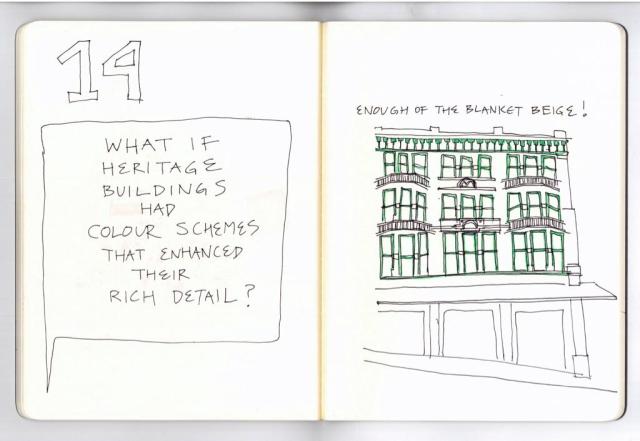 14
WHAT IF
HERITAGE
BUILDINGS
HAD
COLOUR SCHEMES
THAT ENHANCED
THEIR
RICH DETAIL?
ENOUGH OF THE BLANKET BEIGE!